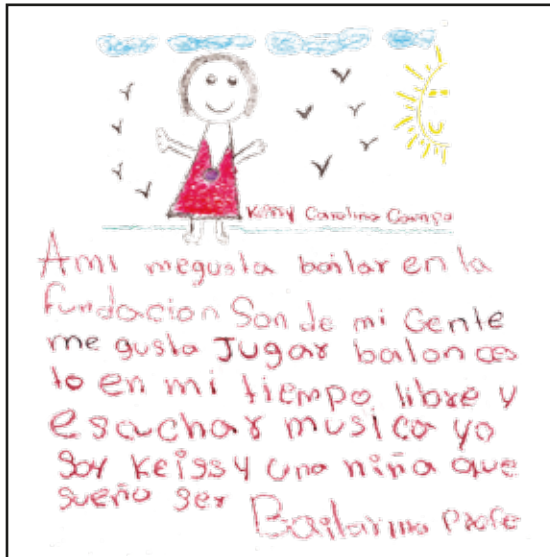 Keissy Carolina
Ami megusta bailar en la
fundacion Son de mi Gente
me gusta Jugar balonces
to en mi tiempo libre y
escuchar musica yo
Soy Keissy una niña que
sueño ser Bailarina Profe